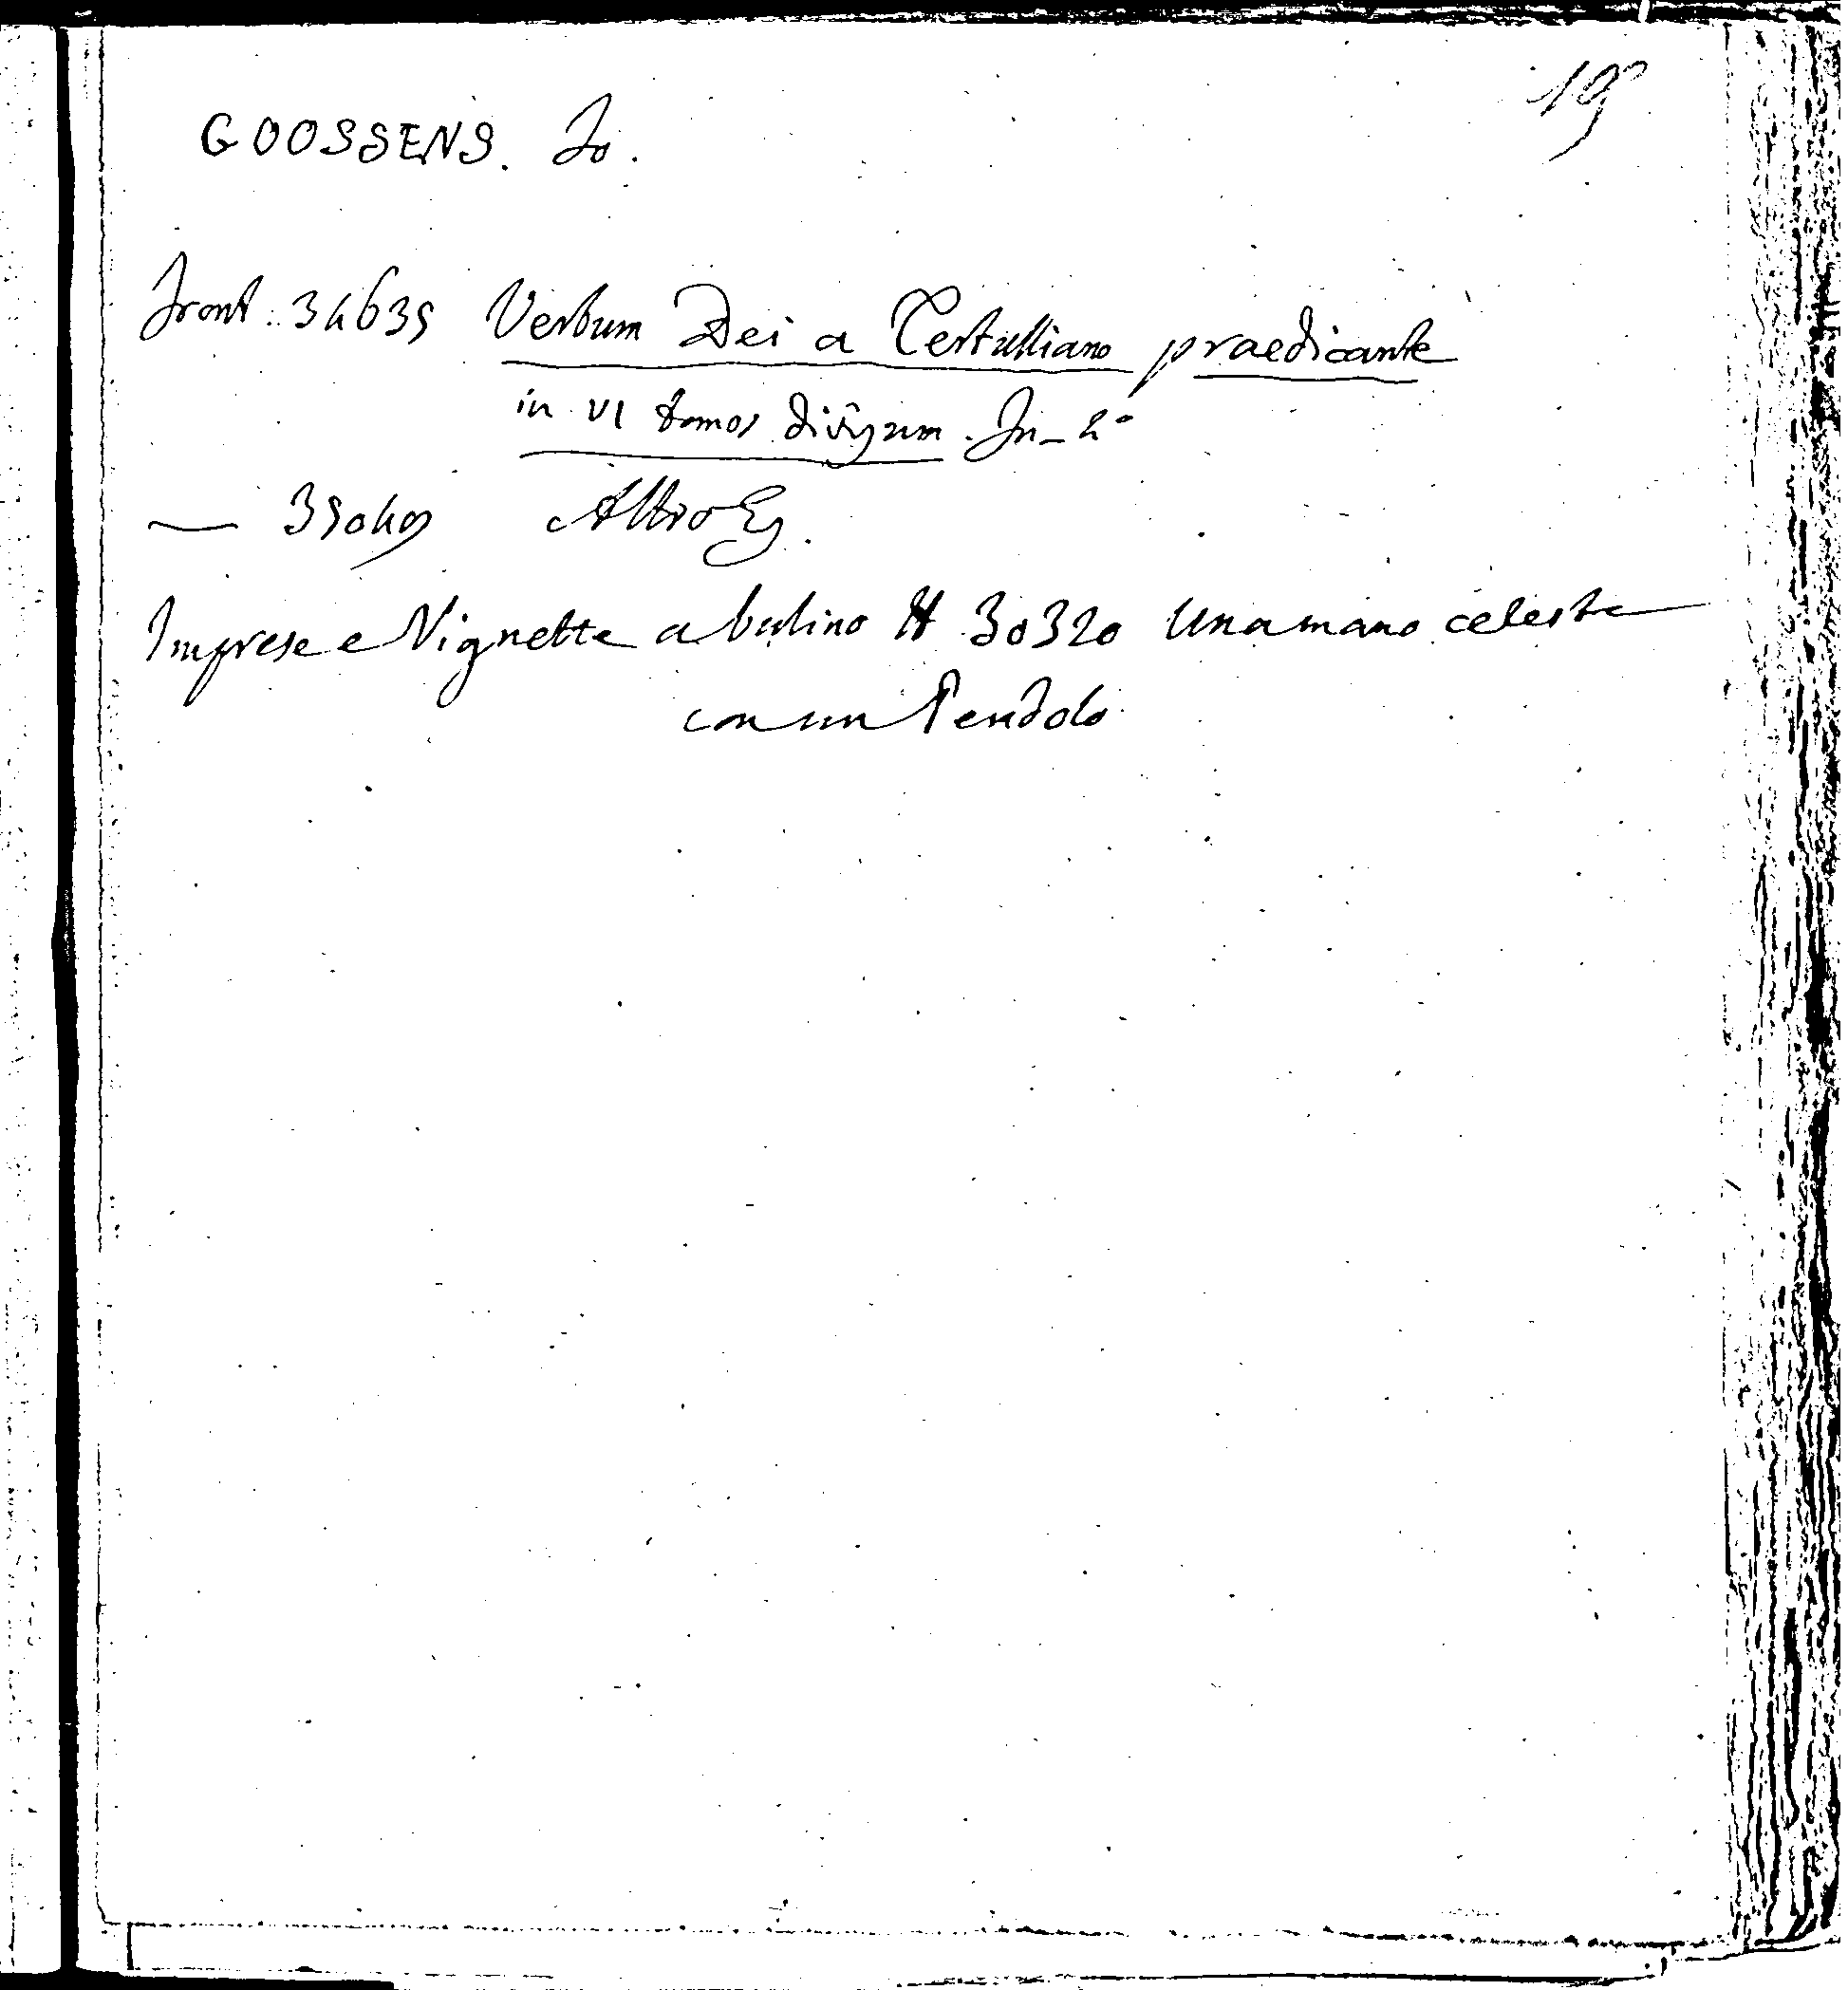 19
GOOSSENS. Jo.
Front. 34635 Verbum Dei a Tertulliano praedicante
in VI tomos divisum. In-4°
— 35049 Altro Es.
Imprese e Vignette a bulino H 30320 Una mano celeste
con un Pendolo